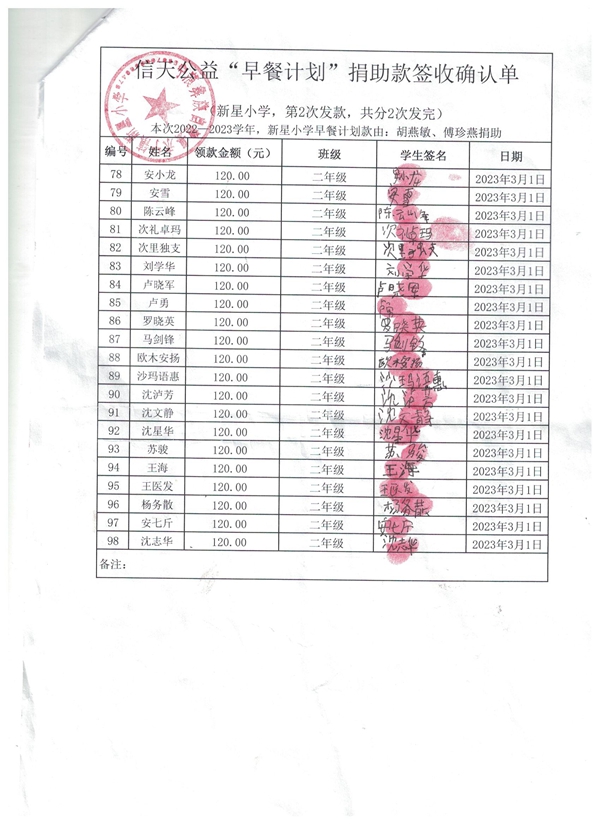 信天公益“早餐计划”捐助款签收确认单
（新星小学，第2次发款，共分2次发完）
本次2022—2023学年，新星小学早餐计划款由：胡燕敏、傅珍燕捐助
编号 姓名 领款金额（元） 班级 学生签名 日期
78 安小龙 120.00 二年级 2023年3月1日
79 安雪 120.00 二年级 安雪 2023年3月1日
80 陈云峰 120.00 二年级 陈云峰 2023年3月1日
81 次礼卓玛 120.00 二年级 2023年3月1日
82 次里独支 120.00 二年级 次里独支 2023年3月1日
83 刘学华 120.00 二年级 刘学华 2023年3月1日
84 卢晓军 120.00 二年级 卢晓军 2023年3月1日
85 卢勇 120.00 二年级 2023年3月1日
86 罗晓英 120.00 二年级 罗晓英 2023年3月1日
87 马剑锋 120.00 二年级 马剑锋 2023年3月1日
88 欧木安扬 120.00 二年级 欧木安扬 2023年3月1日
89 沙玛语惠 120.00 二年级 沙玛语惠 2023年3月1日
90 沈泸芳 120.00 二年级 沈泸芳 2023年3月1日
91 沈文静 120.00 二年级 沈文静 2023年3月1日
92 沈星华 120.00 二年级 沈星华 2023年3月1日
93 苏骏 120.00 二年级 苏骏 2023年3月1日
94 王海 120.00 二年级 王海 2023年3月1日
95 王医发 120.00 二年级 王医发 2023年3月1日
96 杨务散 120.00 二年级 杨务散 2023年3月1日
97 安七斤 120.00 二年级 安七斤 2023年3月1日
98 沈志华 120.00 二年级 沈志华 2023年3月1日
备注：